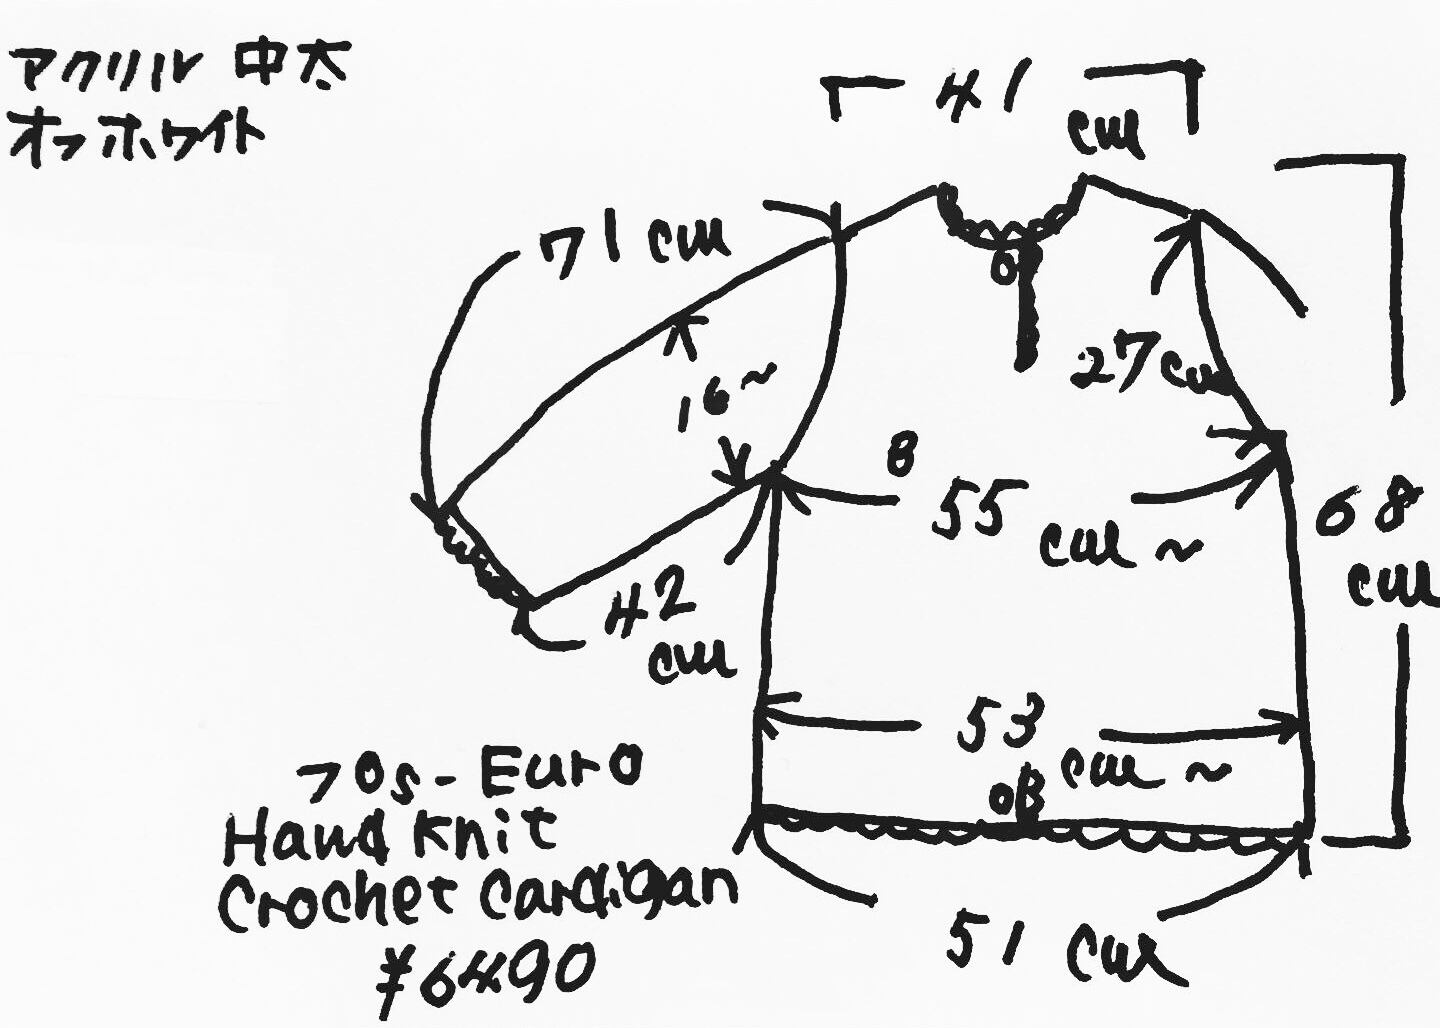 アクリル 中太
オフホワイト
41
cm
71cm
27cm
16~
8
55
cm~
68
cm
42
cm
53
cm~
51 cm
70s-Euro
Hand Knit
Crochet Cardigan
¥6490